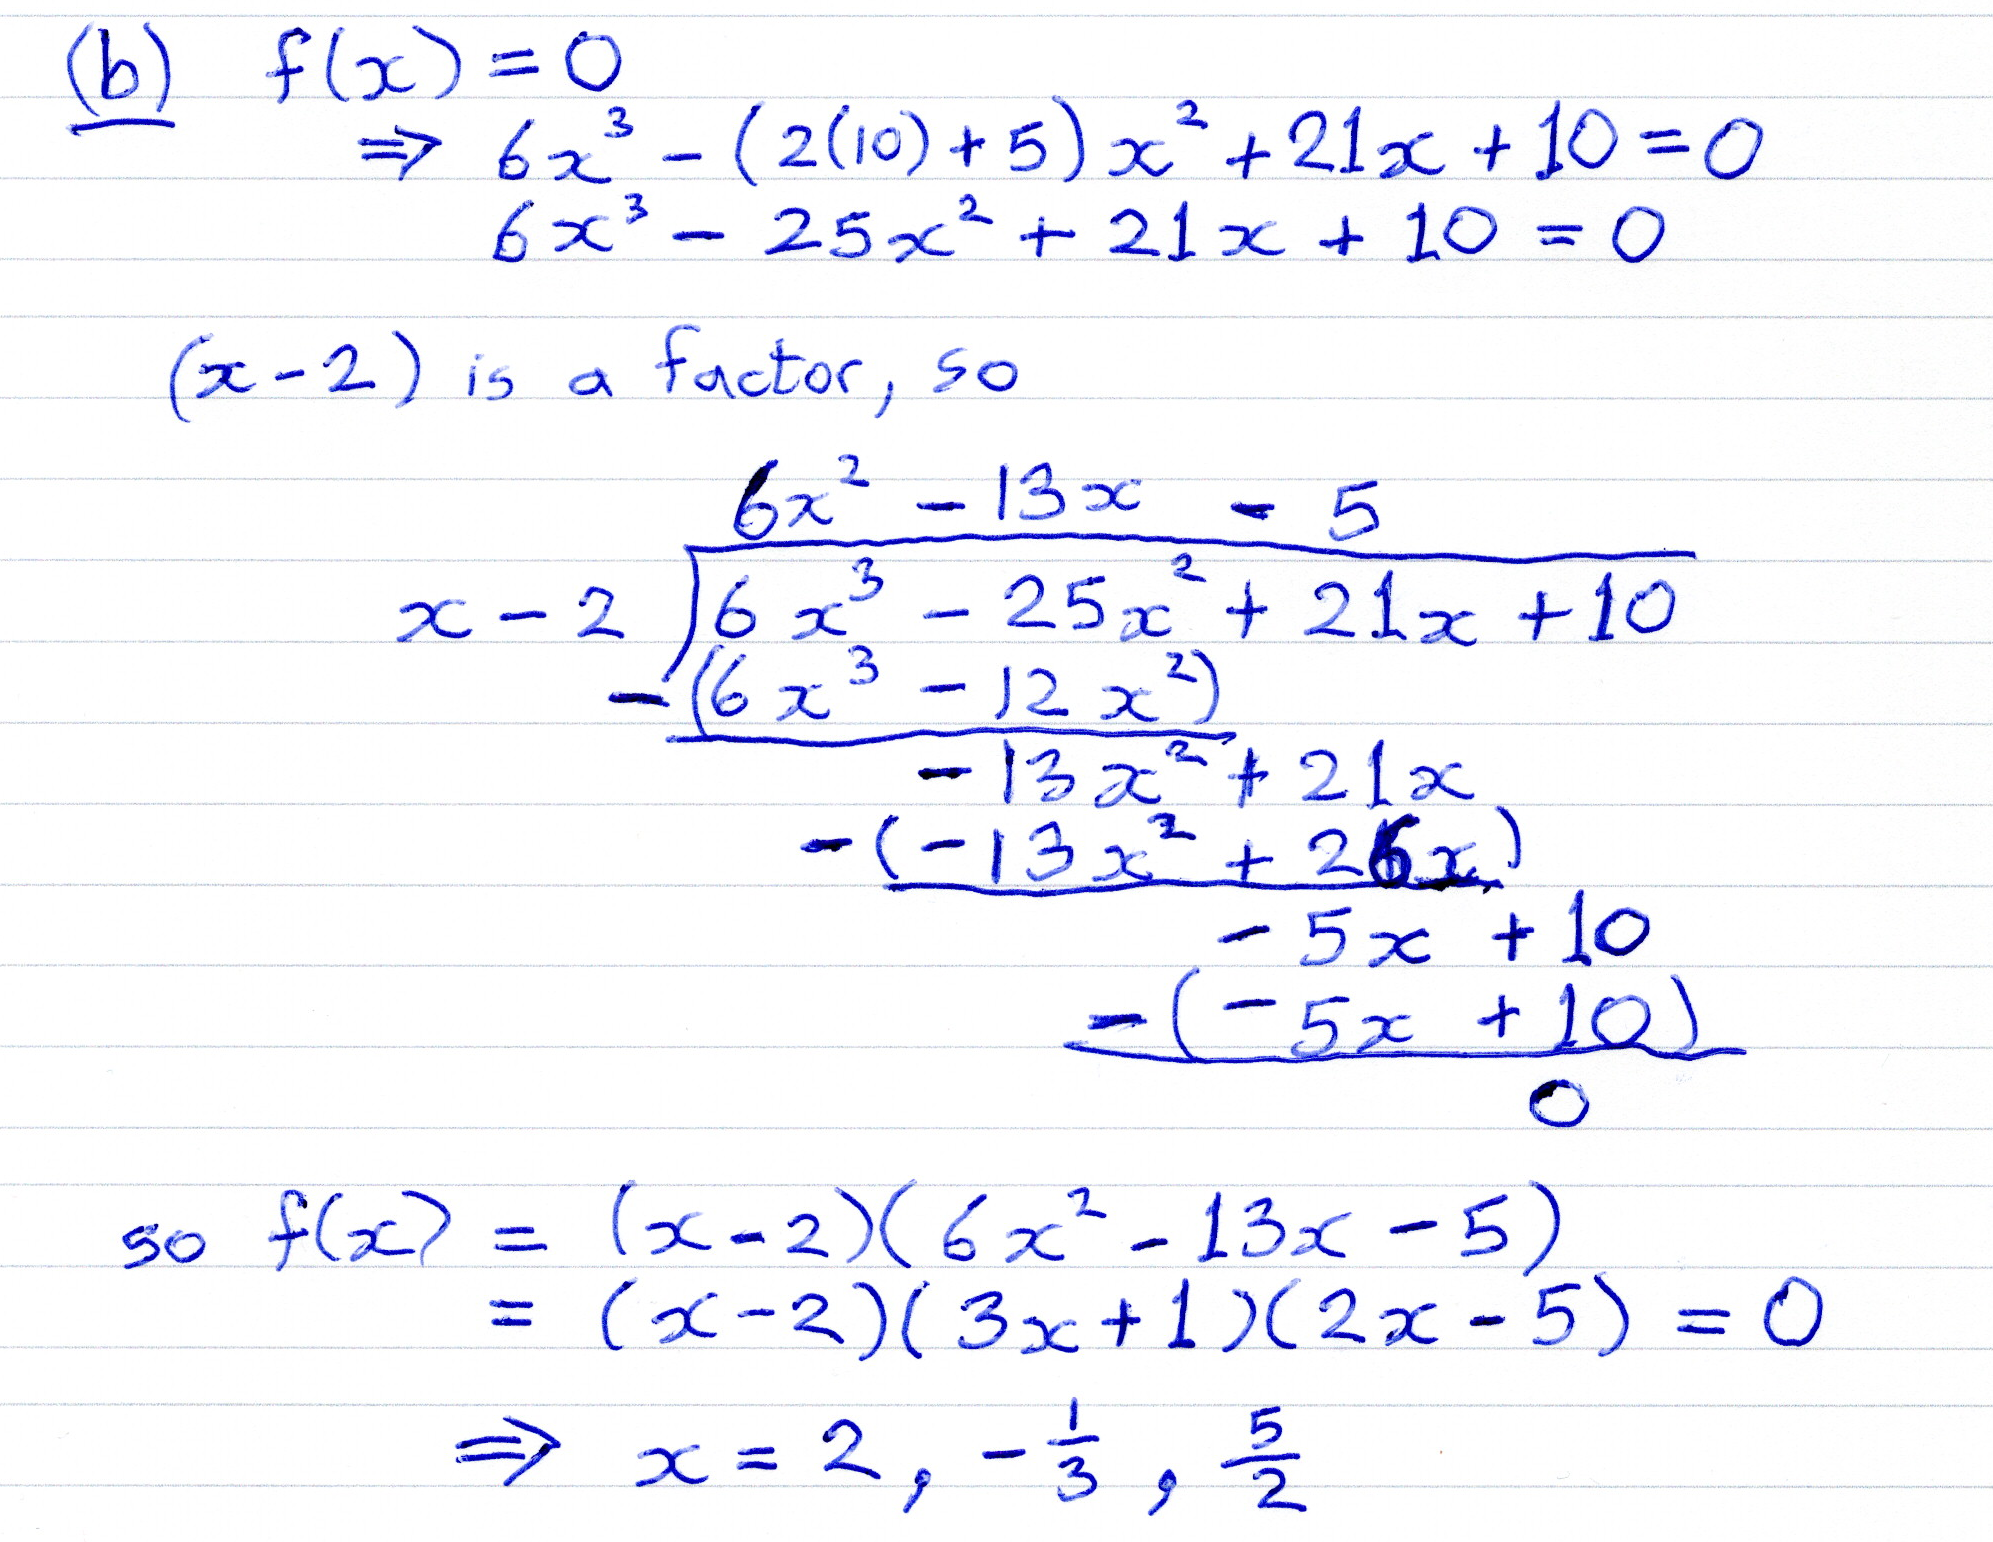 (b) f(x) = 0
⇒ 6x³ - (2(10) + 5)x² + 21x + 10 = 0
6x³ - 25x² + 21x + 10 = 0
(x - 2) is a factor, so
6x² - 13x - 5
x - 2 6x³ - 25x² + 21x + 10
-(6x³ - 12x²)
-13x² + 21x
-(-13x² + 26x)
-5x + 10
-(-5x + 10)
0
so f(x) = (x - 2)(6x² - 13x - 5)
= (x - 2)(3x + 1)(2x - 5) = 0
⇒ x = 2, -1/3, 5/2